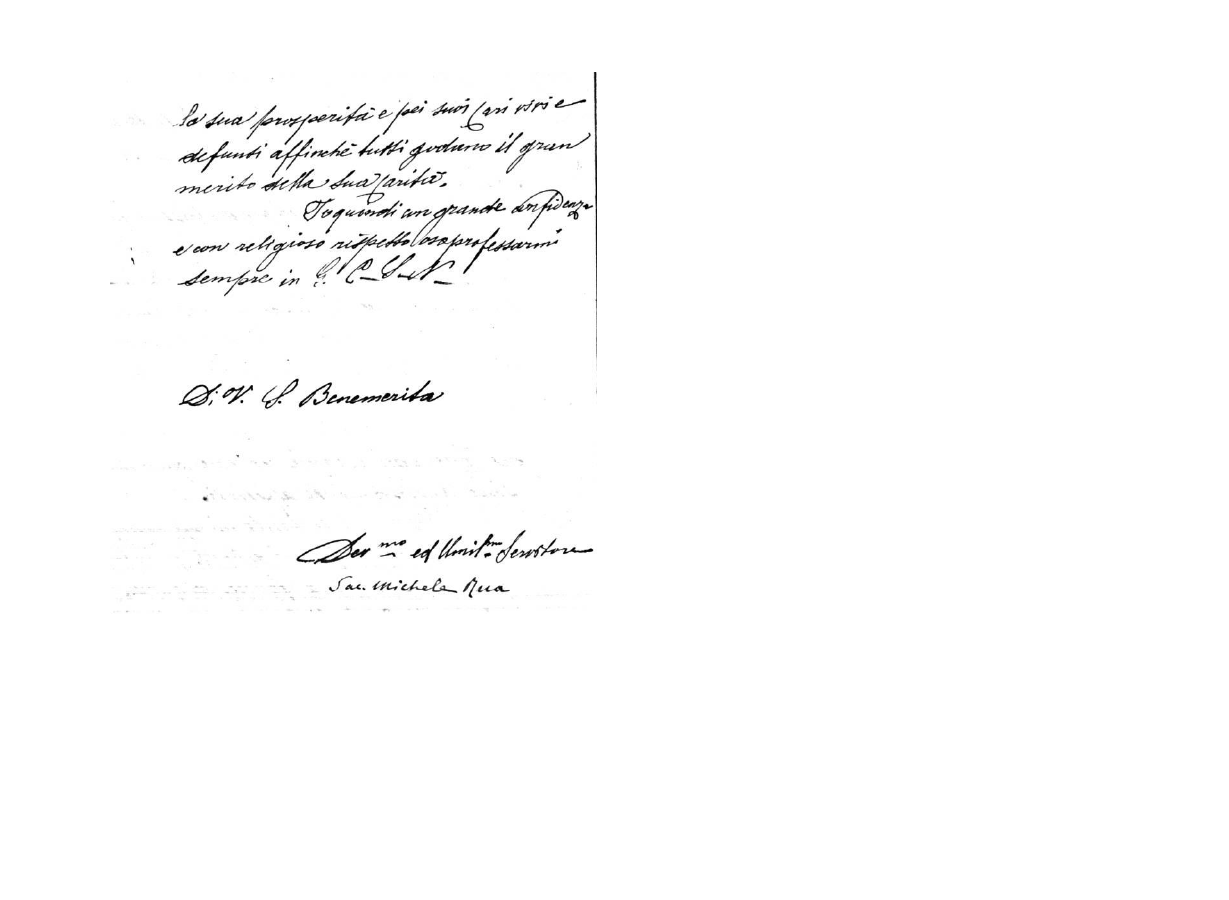 la sua prosperità e pei suoi cari vivi e
defunti affinchè tutti godano il gran
merito della sua carità.
Io quindi con grande confidenza
e con religioso rispetto oso professarmi
sempre in G. C. S. N.
Di V. S. Benemerita
Dev mo ed Umil mo Servitore
Sac. Michele Rua